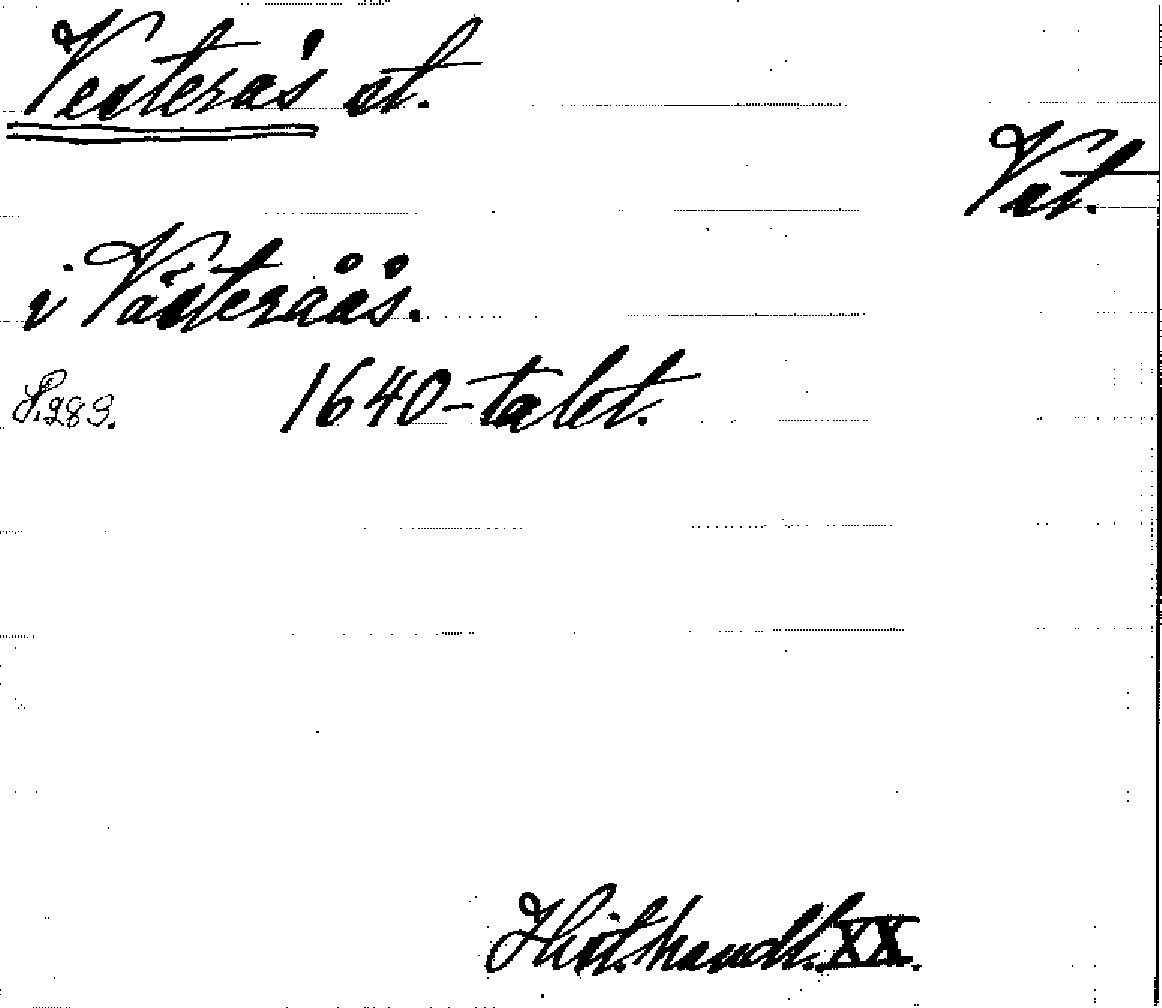 Vesterås st.
Vst.
i Västeråås.
S. 289. 1640-talet.
Hist. handl. XX.